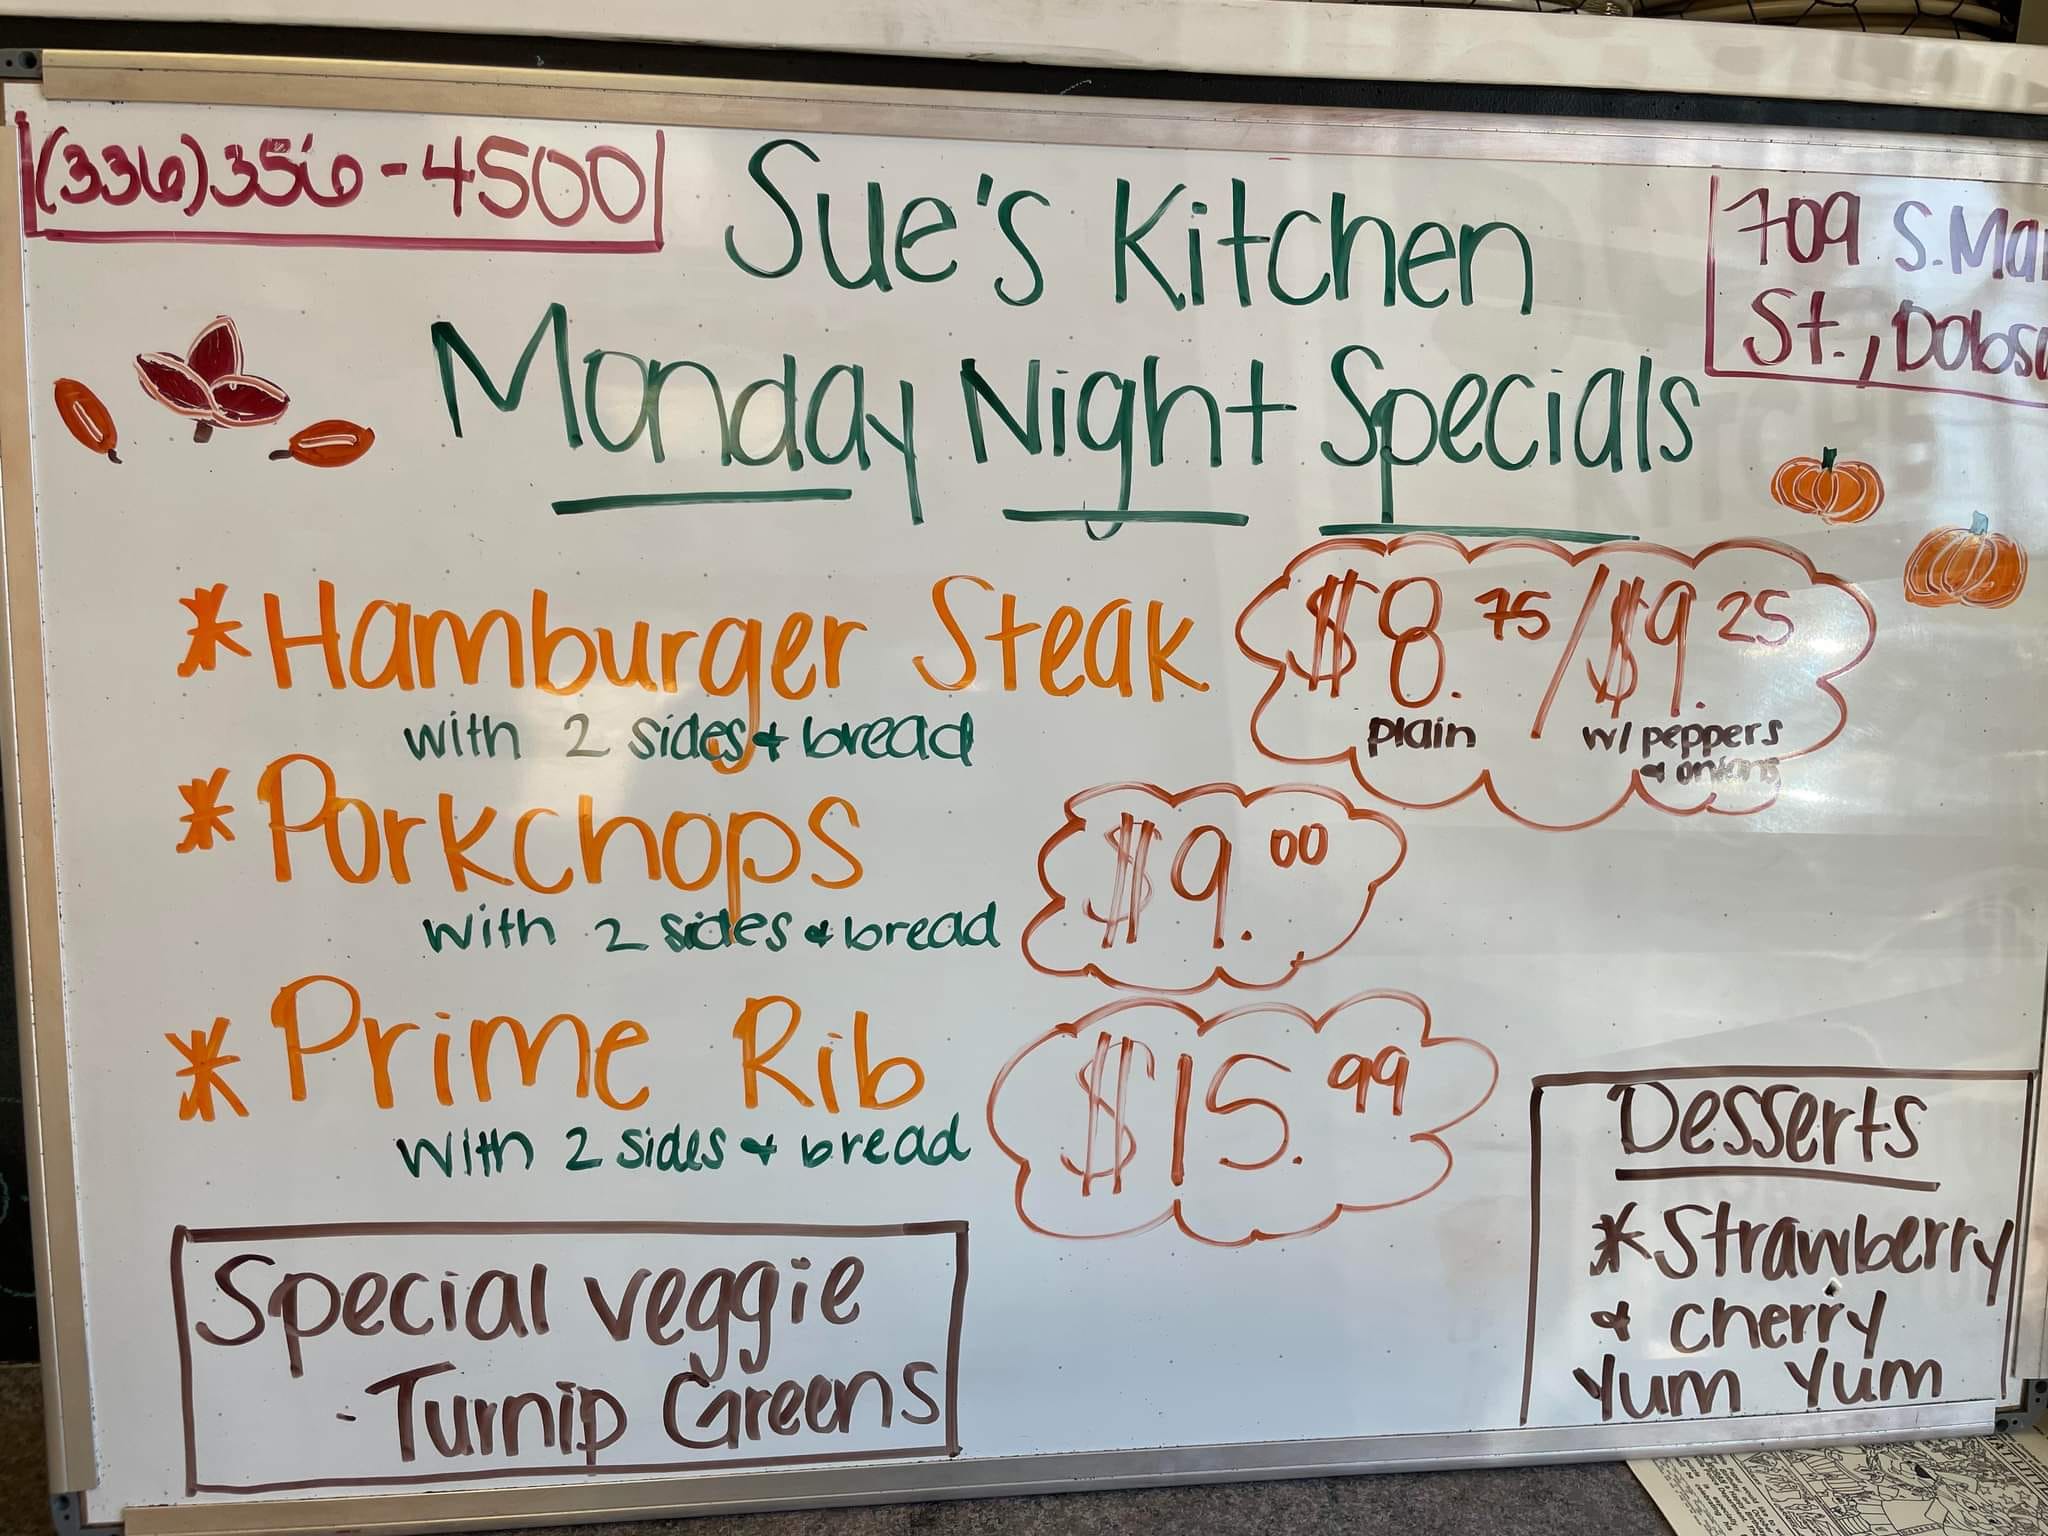 (336)356-4500
Sue's Kitchen
709 S.Mai
St., Dobso
Monday Night Specials
*Hamburger Steak $8.75/$9.25
with 2 sides & bread
plain w/ peppers
& onions
*Porkchops $9.00
with 2 sides & bread
*Prime Rib $15.99
with 2 sides & bread
Special veggie
- Turnip Greens
Desserts
*Strawberry
& cherry
Yum Yum